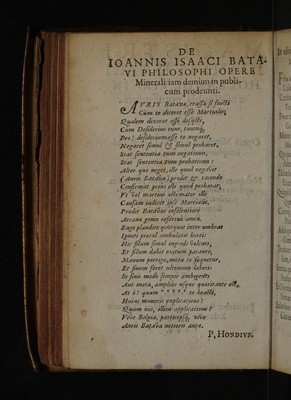 DE
IOANNIS ISAACI BATA-
VI PHILOSOPHI OPERE
Minerali iam demùm in publi-
cum prodeunti.
AVRIS Batava, crassa si fuisti
Cùm te diceret esse Martialis,
Qualem dixerat esse
Cum Desiderius tuus, tuumq,
Pro! desideriumesse te negaret,
Negaret simul & simul probaret.
Stat sententia tum negatium,
Stat sententia tum probatium:
Alter qui neget, ille quod negabit
(Auris Batava) prodit & tacendo
Confirmat genio ille quod probarat,
Et vel martini aestimator ille
Causam iudicet ipse Martialis.
Prodit Batavus
Arcana genio refertus
Euge plaudite quotquot inter umbras
Igniti procul ambulatis hortis
Hic filum simul ingredi volenti,
Et filum dabit exeunti
Manum porrige, meta te sequetur,
Et finem feret ultimum labori:
Si sine modo semper ambigenti
Aut meta, amplius usque quaeritanti est,
At ô! quam * * * * te beasti,
Huius muneris explicatione?
Quam nos, illius applicatione?
Vive Belgia, particepsq, vive
Auris Batava
P. HONDIVS.